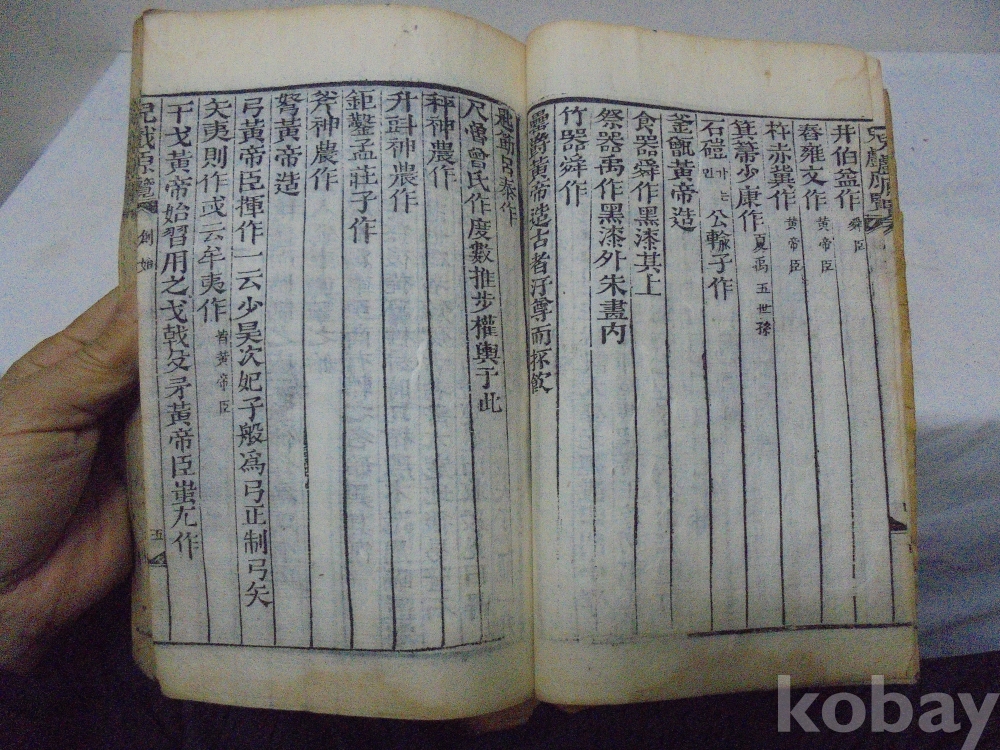 井伯益作 舜臣
舂雍文作 黃帝臣
杵赤冀作 黃帝臣
箕箒少康作 夏禹五世孫
石磑 가는 公輸子作
釜甑黃帝造
食器舜作黑漆其上
祭器禹作黑漆外朱畫內
竹器舜作
罍爵黃帝造古者汙尊而抔飮
匙筯呂秦作
尺黌曾氏作度數推步權輿于此
秤神農作
升㪷神農作
鉅鑿孟莊子作
斧神農作
弩黃帝造
弓黃帝臣揮作一云少昊次妃子般爲弓正制弓矢
矢夷則作或云牟夷作 皆黃帝臣
干戈黃帝始習用之戈戟殳矛黃帝臣蚩尤作
兒戱原覽 創始 五
kobay